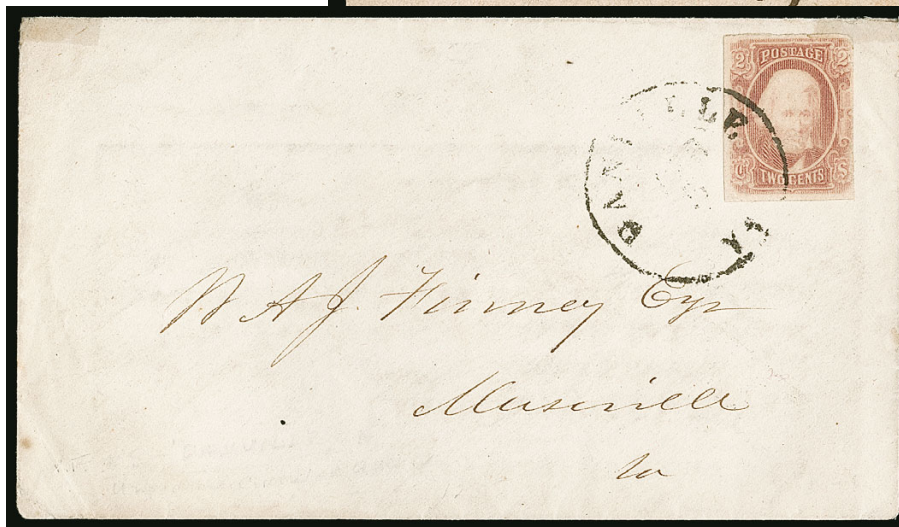 2 POSTAGE 2
C S
TWO CENTS
DANVILLE. VA
W A J Finney Esqr
Museville
Va